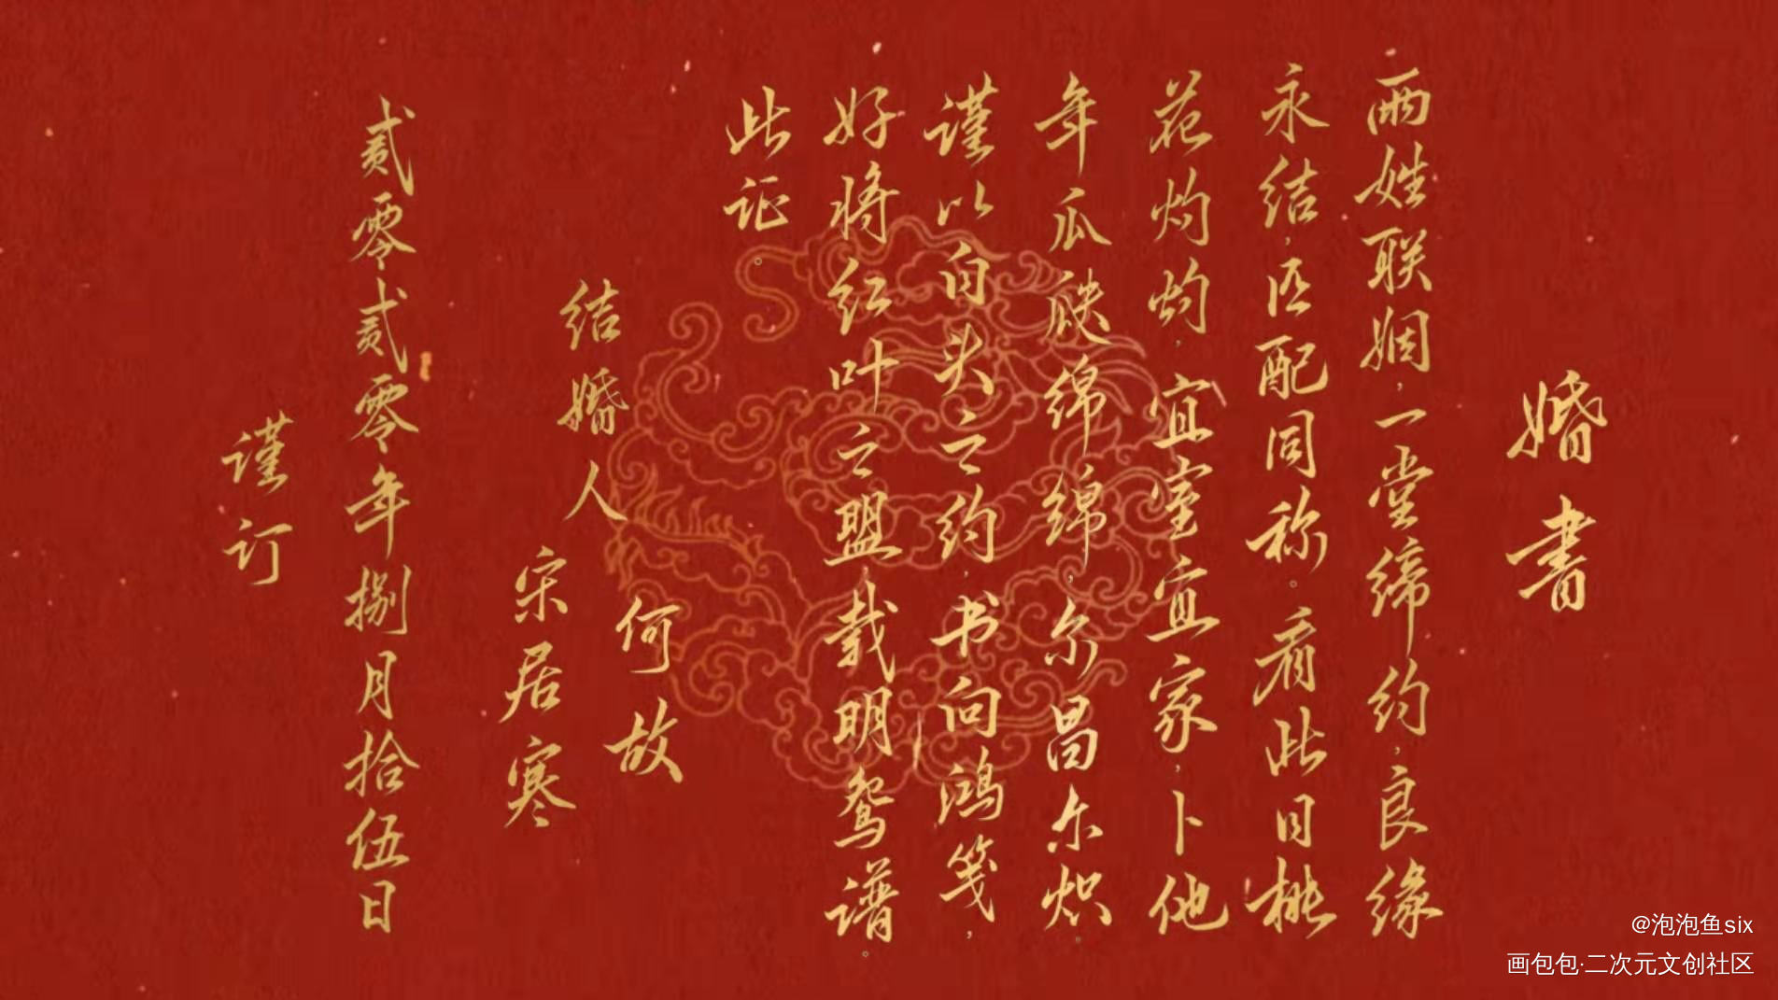 婚書
兩姓联姻,一堂缔约,良缘
永结,匹配同称。看此日桃
花灼灼,宜室宜家,卜他
年瓜瓞绵绵,尔昌尔炽。
谨以白头之约,书向鸿笺,
好将红叶之盟,载明鸳谱。
此证。
结婚人
何故
宋居寒
贰零贰零年捌月拾伍日
谨订
@泡泡鱼six
画包包·二次元文创社区